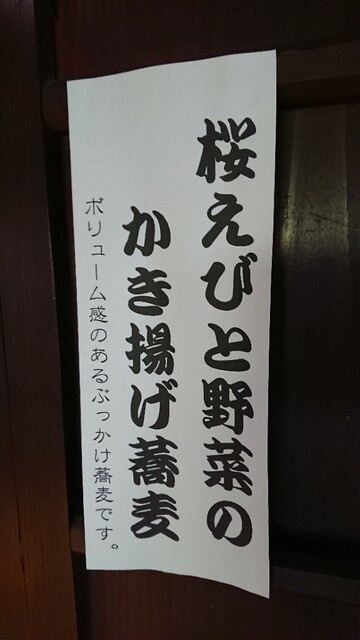 桜えびと野菜の
かき揚げ蕎麦
ボリューム感のあるぶっかけ蕎麦です。